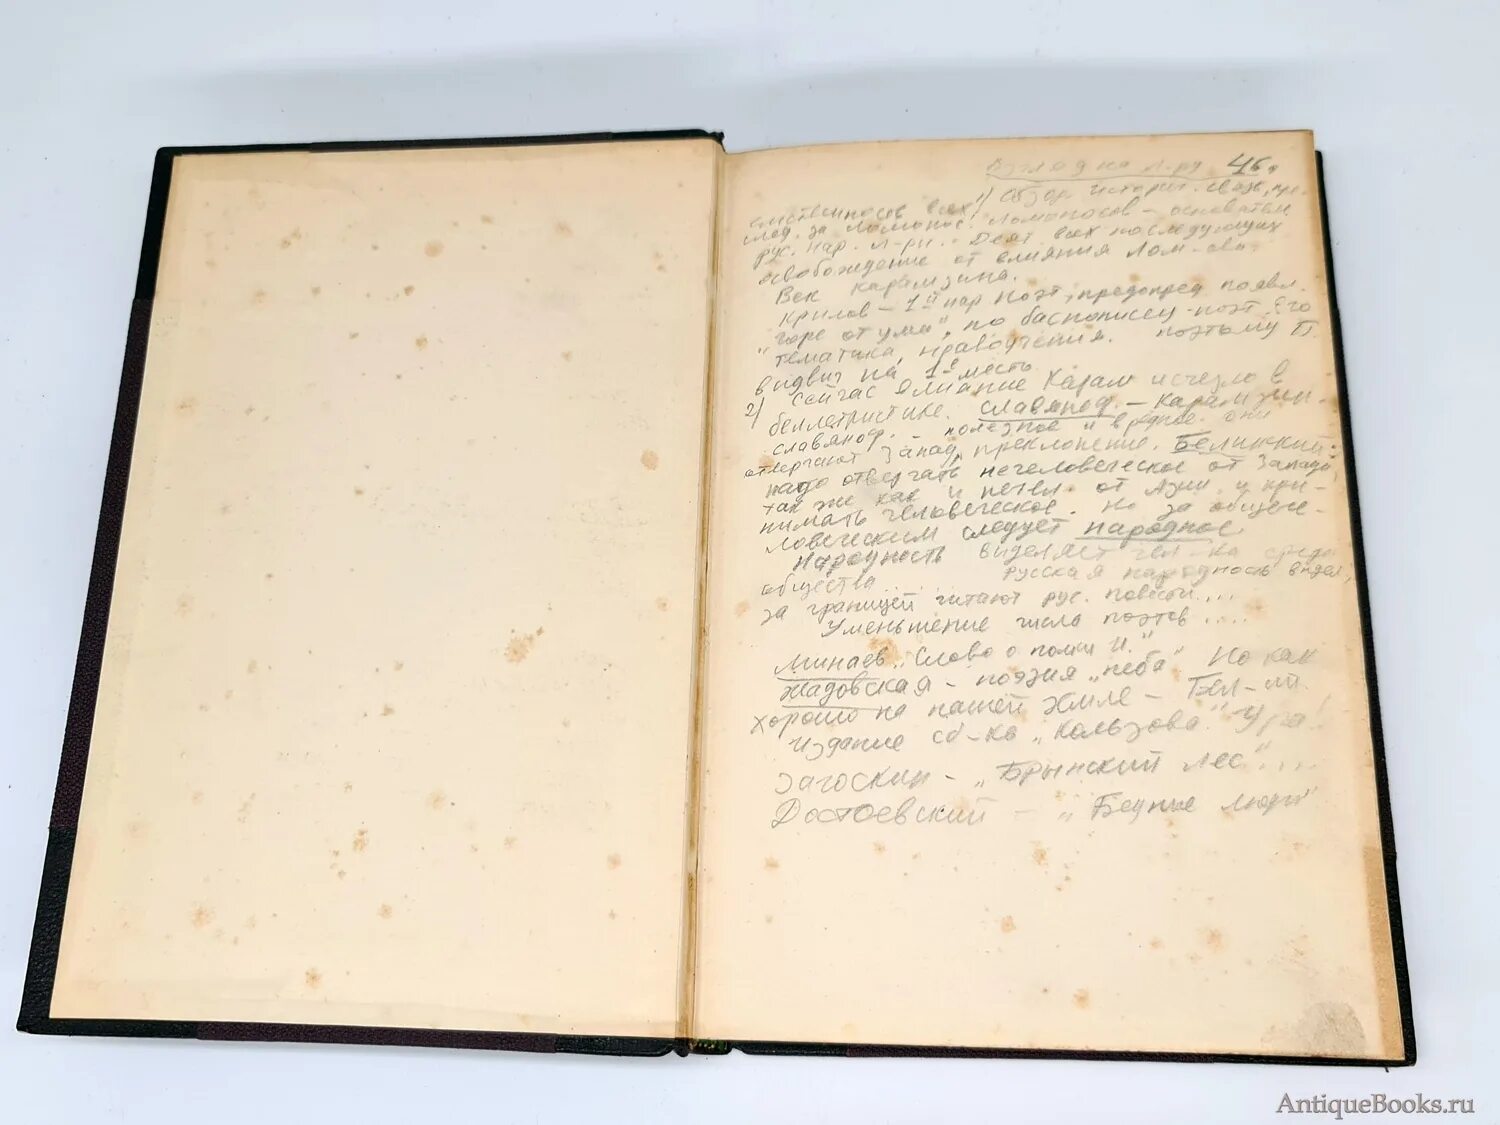 Взгляд на л-ру 46 г
1) Обзор. историч. связ, пре-
емственность всех
след. за Ломонос. Ломоносов - основатель
рус. нар. л-ры. Деят. всех последующих
освобождение от влияния Лом-ова.
Век Карамзина.
Крилов - 1й нар поэт, предопред появл.
"Горе от ума", но баснописец-поэт. Его
тематика, нравоучения. поэтому П.
выдвиг на 1е месть
2) Сейчас влияние Карам исчезло в
беллетристике. Славяноф. - Карамзин.
славяноф. полезное и вредное. они
отвергают Запад, преклонение. Белинский:
надо отвергать нечеловеческое от Запада,
так же как и нечел. от Азии и при-
нимать человеческое. Но за общече-
ловеческим следует народное
Народность выделяет чел-ка среди
общества... русская народность видел,
за границей читают рус. повести....
Уменьшение числа поэтов....
Минаев "Слово о полку И."
Жадовская - поэзия "неба" Но как
хорошо на нашей земле - Бел-ий.
Издание сб-ка "Кольцова". Ура!
Загоскин - "Брынский лес"....
Достоевский - "Бедные люди"
AntiqueBooks.ru